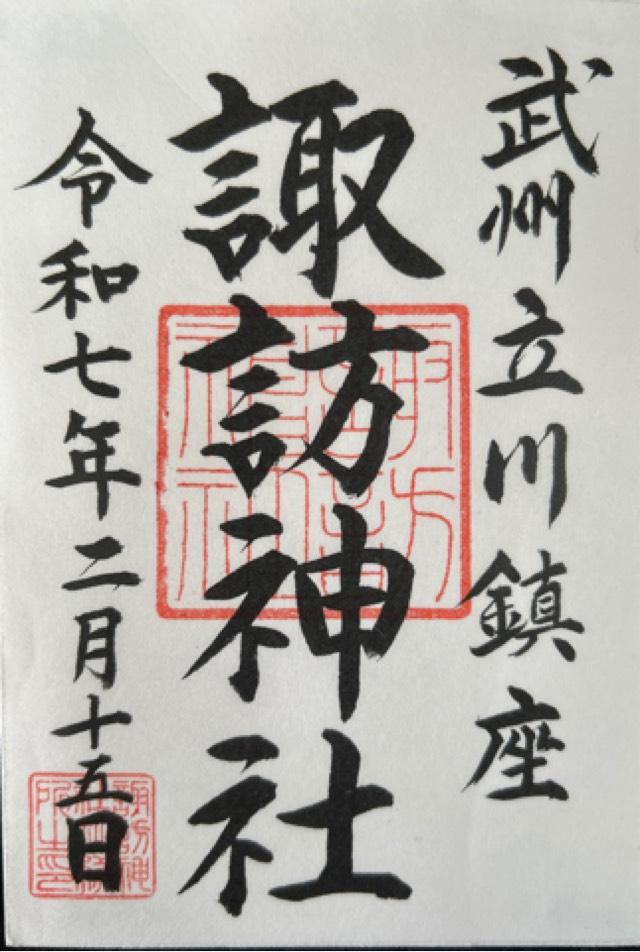 武州立川鎮座
諏訪神社
令和七年二月十五日
諏訪神社